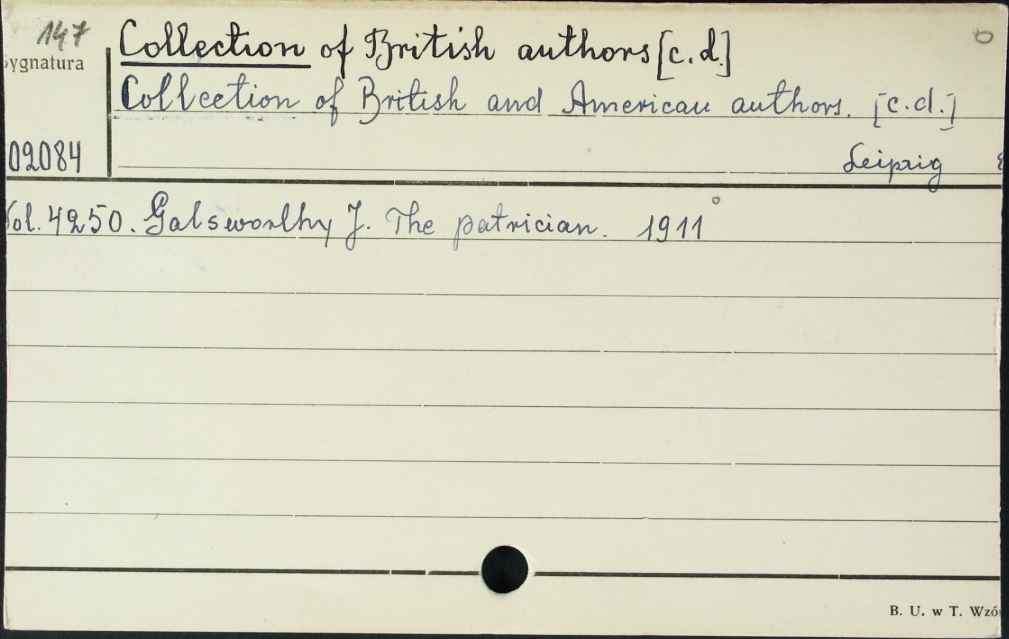 147
Sygnatura
Collection of British authors [c.d.]
Collection of British and American authors. [c.d.]
02084
Leipzig 8
Vol. 4250. Galsworthy J. The patrician. 1911
B. U. w T. Wzó